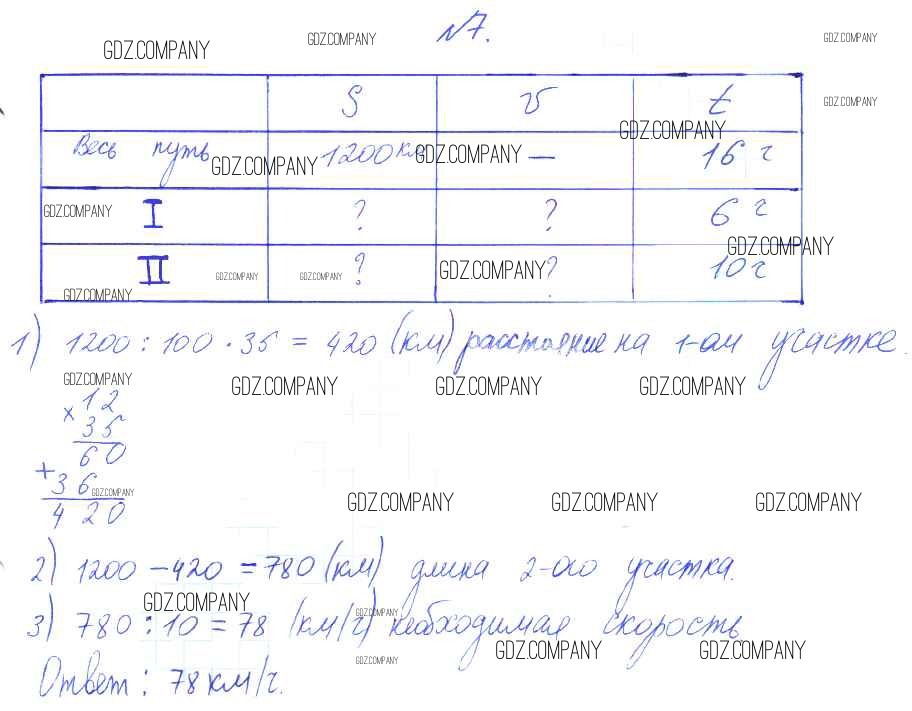 №7.
GDZ.COMPANY GDZ.COMPANY GDZ.COMPANY
S v t GDZ.COMPANY
GDZ.COMPANY
Весь путь GDZ.COMPANY 1200 км GDZ.COMPANY — 16 ч
GDZ.COMPANY I ? ? 6 ч
GDZ.COMPANY
II GDZ.COMPANY GDZ.COMPANY ? GDZ.COMPANY ? 10 ч
GDZ.COMPANY
1) 1200 : 100 · 35 = 420 (км) расстояние на 1-ом участке.
GDZ.COMPANY GDZ.COMPANY GDZ.COMPANY GDZ.COMPANY
× 12
35
60
+ 36 GDZ.COMPANY
420
GDZ.COMPANY GDZ.COMPANY GDZ.COMPANY
2) 1200 – 420 = 780 (км) длина 2-ого участка.
GDZ.COMPANY GDZ.COMPANY
3) 780 : 10 = 78 (км/ч) необходимая скорость
GDZ.COMPANY GDZ.COMPANY GDZ.COMPANY
Ответ: 78 км/ч.